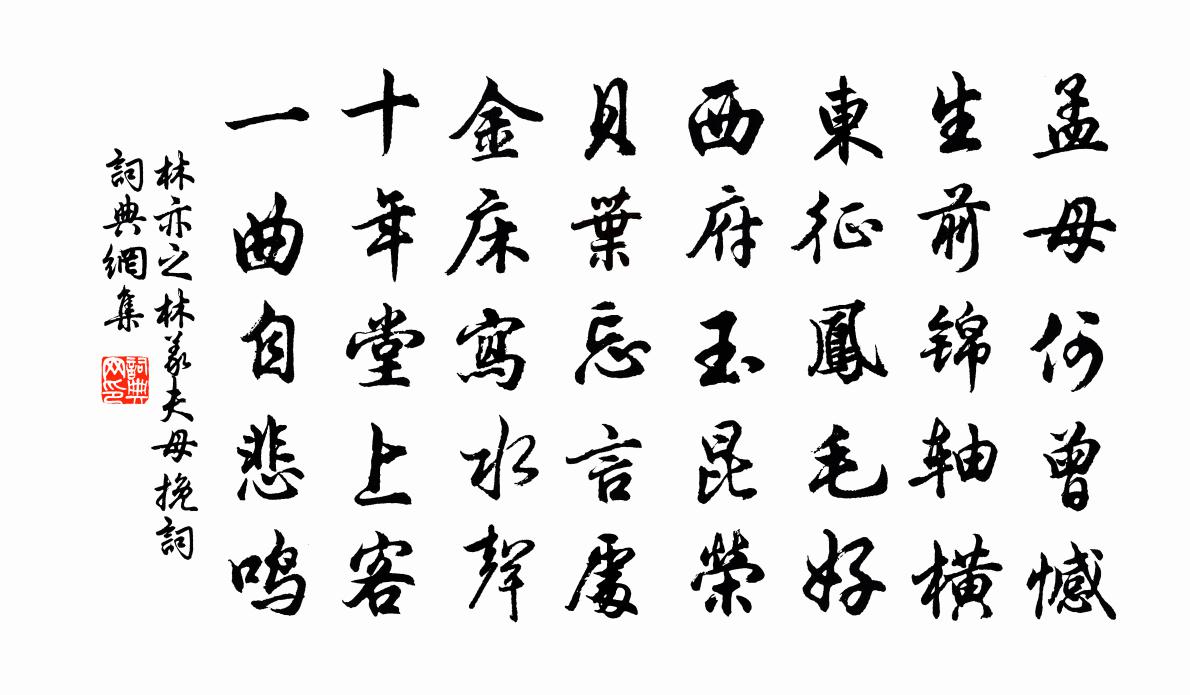 孟母何曾憾
生前锦轴横
東征鳳毛好
西府玉昆榮
貝葉忘言處
金床寫水聲
十年堂上客
一曲自悲鸣
林亦之林義夫母挽詞
詞典網集
詞典网印